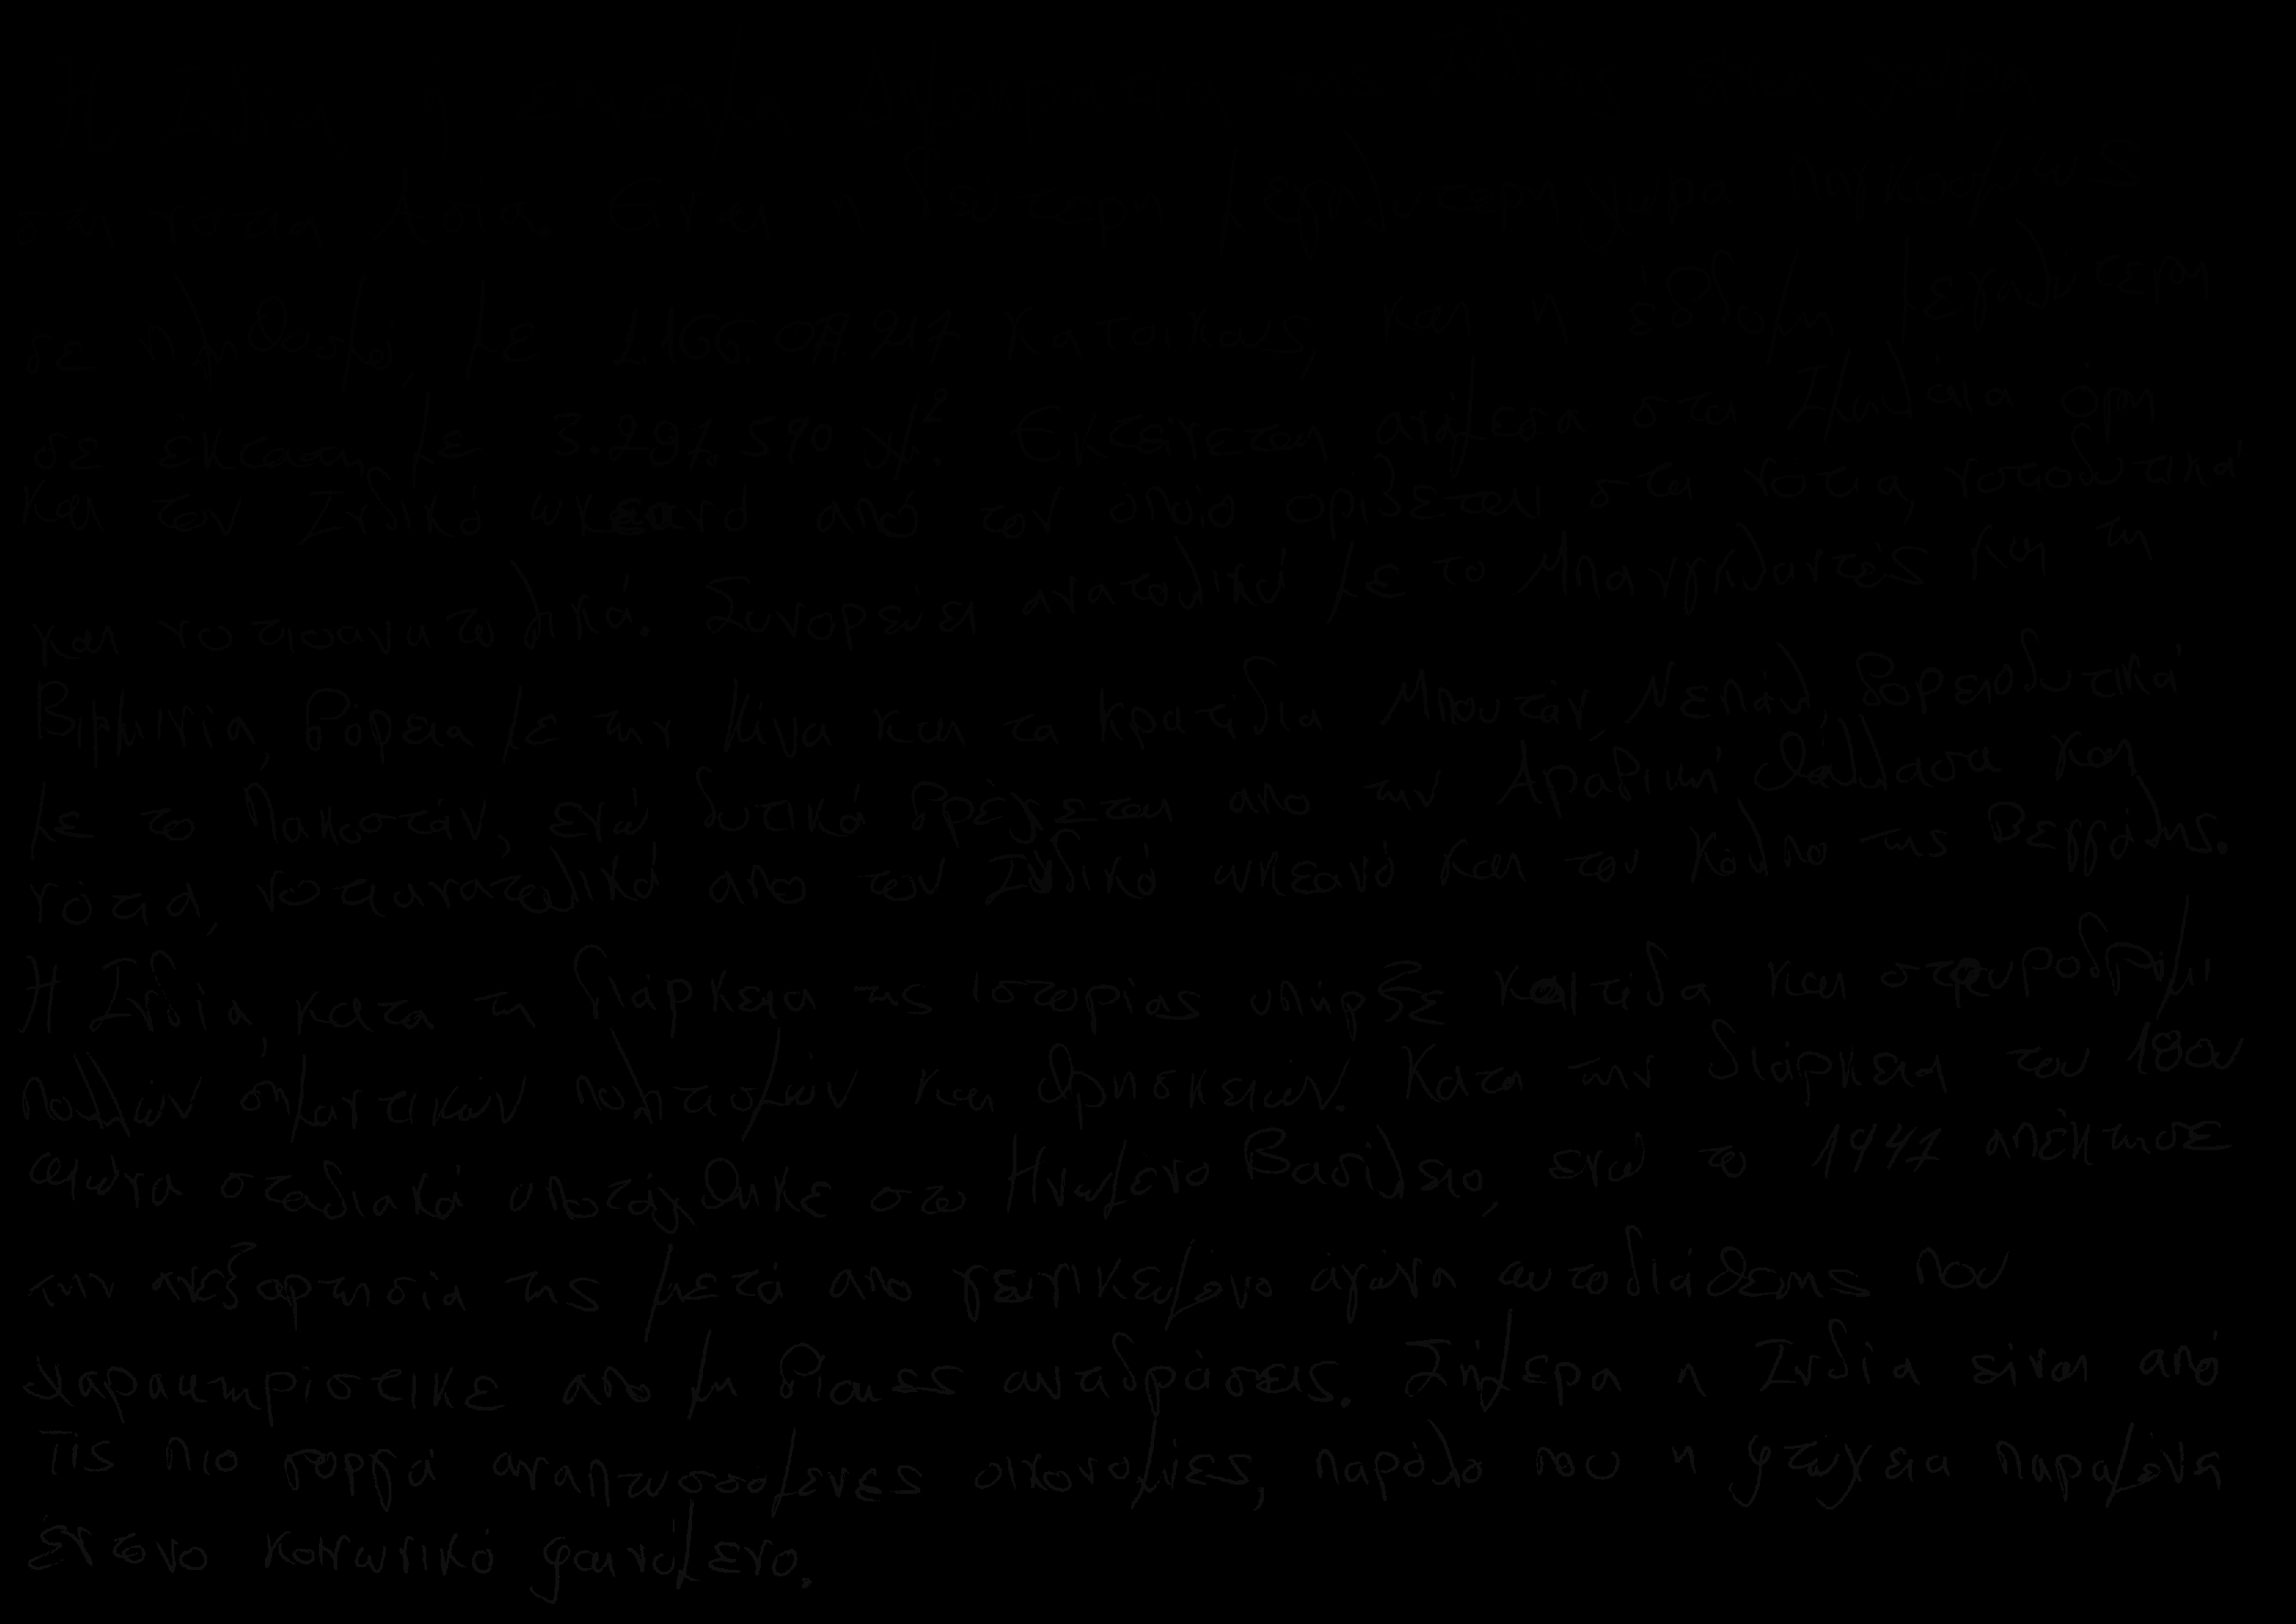 στη νότια Ασία. Είναι η δεύτερη μεγαλύτερη χώρα παγκοσμίως
σε πληθυσμό, με 1.166.079.217 κατοίκους, και η έβδομη μεγαλύτερη
σε έκταση, με 3.287.590 χμ². Εκτείνεται ανάμεσα στα Ιμαλάια όρη
και τον Ινδικό ωκεανό από τον όποιο ορίζεται στα νότια, νοτιοδυτικά
και νοτιοανατολικά. Συνορεύει ανατολικά με το Μπανγκλαντές και τη
Βιρμανία, βόρεια με την Κίνα και τα κρατίδια Μπουτάν, Νεπάλ, βορειοδυτικά
με το Πακιστάν, ενώ δυτικά βρέχεται απο την Αραβική Θάλλασα και
νότια, νοτιανατολικά απο τον Ινδικό ωκεανό και τον Κόλπο της Βεγγάλης.
Η Ινδία, κατα τη διάρκεια της ιστορίας υπήρξε κοιτίδα και σταυροδρόμι
πολλών σημαντικών πολιτισμών και θρησκειών. Κατα την διάρκεια του 18ου
αιώνα σταδιακά υποτάχθηκε στο Ηνωμενο Βασίλειο, ενώ το 1947 απέκτησε
την ανεξαρτησία της μετά απο γενικευμενο αγώνα αυτοδιάθεσης που
χαρακτηρίστικε απο μη βιαιες αντιδράσεις. Σήμερα η Ινδία είναι από
τις πιο γοργά αναπτυσσόμενες οικονομίες, παρόλο που η φτώχεια παραμένει
έντονο κοινωνικό φαινόμενο.